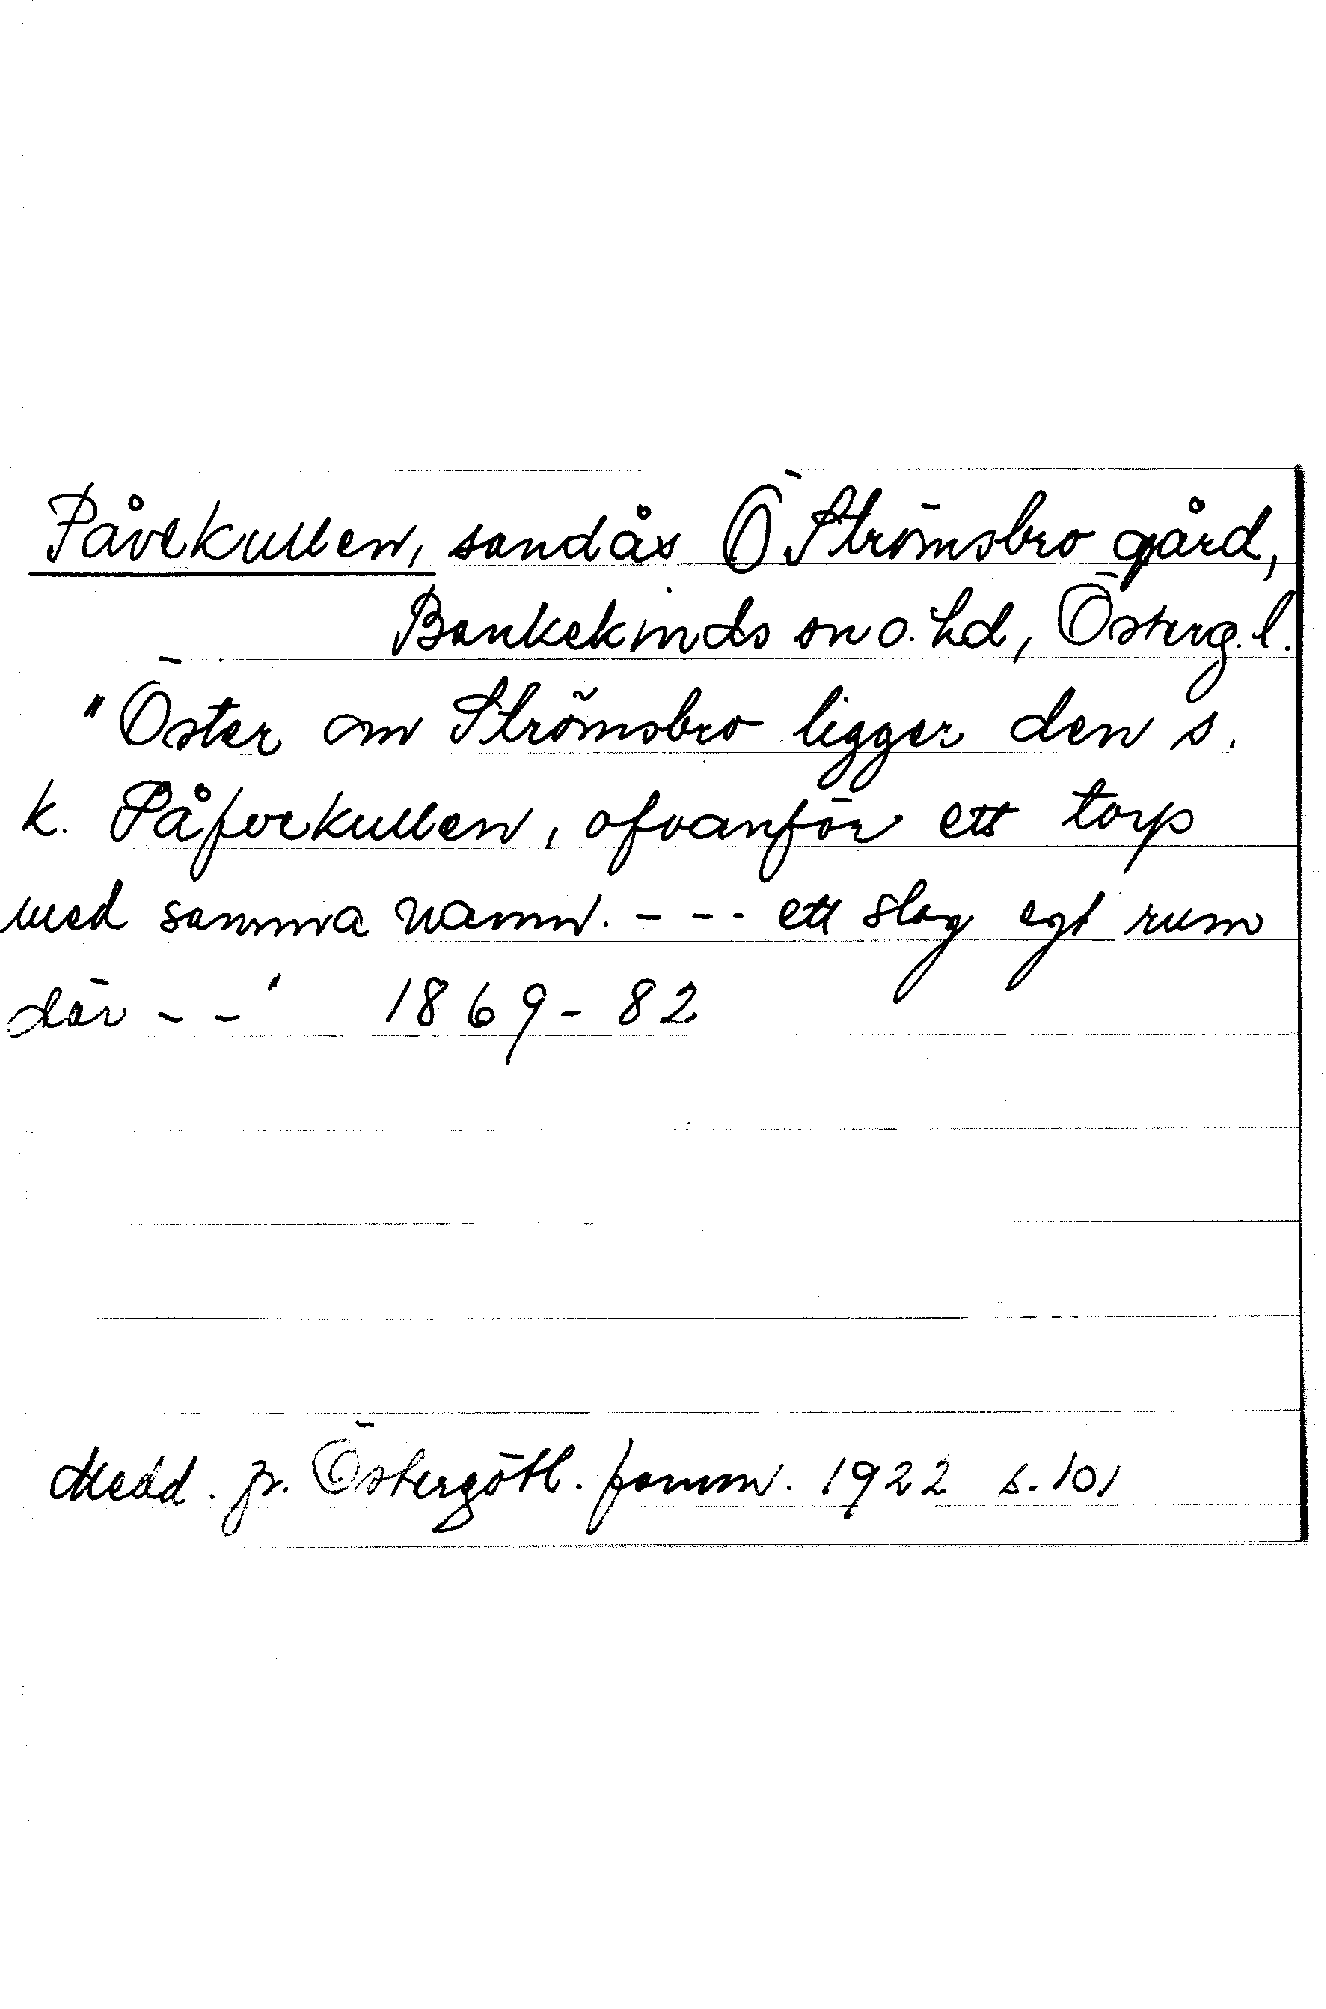 Påvekullen, sandås Ö Strömsbro gård,
Bankekinds sn o. hd, Österg. l.
"Öster om Strömsbro ligger den s.
k. Påfvekullen, ofvanför ett torp
med samma namn. - - - ett slag egt rum
där - - " 1869-82
Medd. fr. Östergötl. fornm. 1922 s. 101